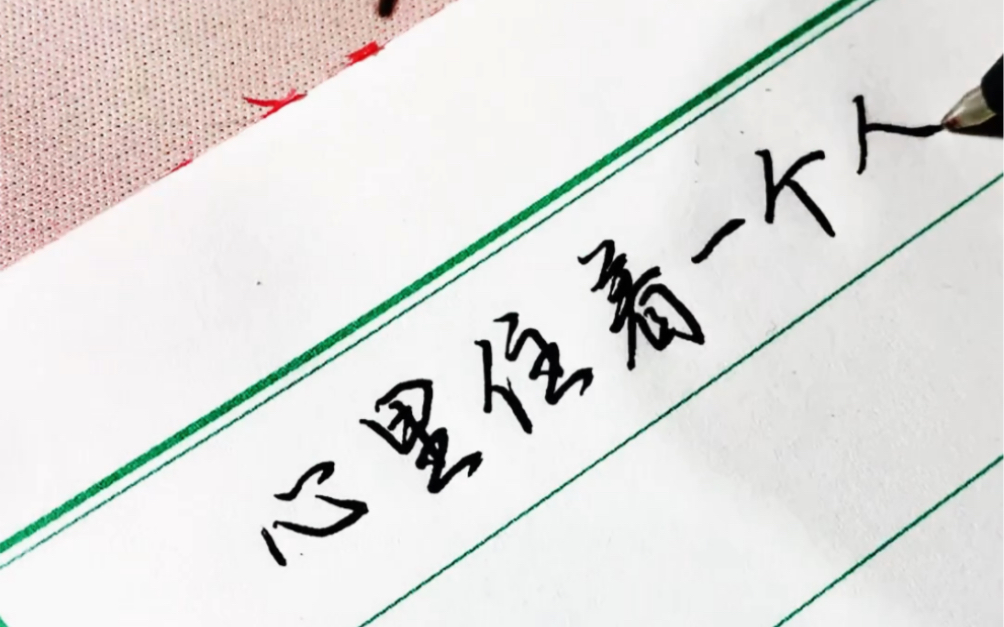 心里住着一个人